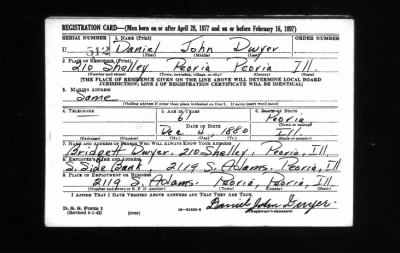 REGISTRATION CARD—(Men born on or after April 28, 1877 and on or before February 16, 1897)
SERIAL NUMBER 1. NAME (Print) ORDER NUMBER
U 512 Daniel John Dwyer
(First) (Middle) (Last)
2. PLACE OF RESIDENCE (Print)
210 Shelley Peoria Peoria Ill.
(Number and street) (Town, township, village, or city) (County) (State)
[THE PLACE OF RESIDENCE GIVEN ON THE LINE ABOVE WILL DETERMINE LOCAL BOARD
JURISDICTION; LINE 2 OF REGISTRATION CERTIFICATE WILL BE IDENTICAL]
3. MAILING ADDRESS
Same
[Mailing address if other than place indicated on line 2. If same insert word same]
4. TELEPHONE 5. AGE IN YEARS 6. PLACE OF BIRTH
61 Peoria
DATE OF BIRTH (Town or county)
Dec 4, 1880 Ill.
(Exchange) (Number) (Mo.) (Day) (Yr.) (State or country)
7. NAME AND ADDRESS OF PERSON WHO WILL ALWAYS KNOW YOUR ADDRESS
Bridgett Dwyer, 210 Shelley, Peoria, Ill
8. EMPLOYER'S NAME AND ADDRESS
S. Side Bank, 2119 S. Adams. Peoria, Ill
9. PLACE OF EMPLOYMENT OR BUSINESS
2119 S. Adams. Peoria, Peoria, Ill.
(Number and street or R. F. D. number) (Town) (County) (State)
I AFFIRM THAT I HAVE VERIFIED ABOVE ANSWERS AND THAT THEY ARE TRUE.
D. S. S. Form 1 Daniel John Dwyer.
(Revised 4-1-42) (over) (Registrant's signature)